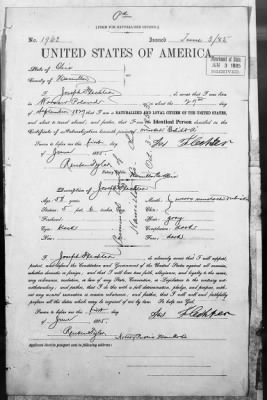 [FORM FOR NATURALIZED CITIZEN.]
No. 1962 Issued June 3/85
UNITED STATES OF AMERICA.
Department of State
RECEIVED.
State of Ohio
County of Hamilton
I, Joseph Fleshler, do swear that I was born
in Poland, on the 29th day
of September 1829; that I am a NATURALIZED AND LOYAL CITIZEN OF THE UNITED STATES,
and about to travel abroad; and further, that I am the Identical Person described in the
Certificate of Naturalization herewith presented.
Sworn to before me this first day Jos Fleshler
of June 1885.
Reuben Tyler
Notary Public
Description of Joseph Fleshler
Age: 55 years. Mouth:
Stature: 5 feet 6 inches Chin:
Forehead: Hair: gray
Eyes: Complexion: dark
Nose: Face:
I, Joseph Fleshler, do solemnly swear that I will support,
protect, and defend the Constitution and Government of the United States against all enemies,
whether domestic or foreign; and that I will bear true faith, allegiance, and loyalty to the same,
any ordinance, resolution, or law of any State, Convention, or Legislature to the contrary not-
withstanding; and further, that I do this with a full determination, pledge, and purpose, with-
out any mental reservation or evasion whatsoever; and further, that I will well and faithfully
perform all the duties which may be required of me by law. So help me God.
Sworn to before me this first day Jos Fleshler
of June 1885.
Reuben Tyler
Notary Public
Applicant desires passport sent to following address: